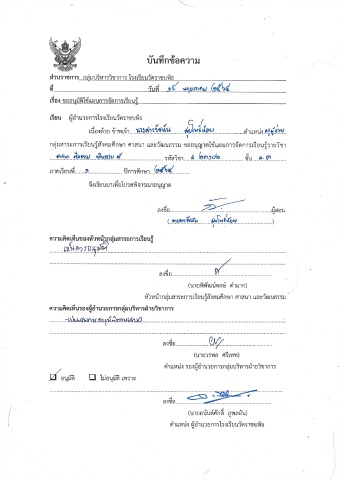 บันทึกข้อความ
ส่วนราชการ กลุ่มบริหารวิชาการ โรงเรียนวัดราชบพิธ
ที่ วันที่ ๑๕ พฤษภาคม ๒๕๖๕
เรื่อง ขออนุมัติใช้แผนการจัดการเรียนรู้
เรียน ผู้อำนวยการโรงเรียนวัดราชบพิธ
เนื่องด้วย ข้าพเจ้า ตำแหน่ง ครูผู้ช่วย
กลุ่มสาระการเรียนรู้สังคมศึกษา ศาสนา และวัฒนธรรม ขออนุญาตใช้แผนการจัดการเรียนรู้รายวิชา
รหัสวิชา ชั้น ม.๓
ภาคเรียนที่ ๑ ปีการศึกษา ๒๕๖๕
จึงเรียนมาเพื่อโปรดพิจารณาอนุญาต
ลงชื่อ ผู้สอน
ความคิดเห็นของหัวหน้ากลุ่มสาระการเรียนรู้
เห็นควรอนุมัติ
ลงชื่อ
(นายพิพัฒน์พงษ์ คำมาก)
หัวหน้ากลุ่มสาระการเรียนรู้สังคมศึกษา ศาสนา และวัฒนธรรม
ความคิดเห็นของรองผู้อำนวยการกลุ่มบริหารฝ่ายวิชาการ
ลงชื่อ
(นายวรพล ศรีเทพ)
ตำแหน่ง รองผู้อำนวยการกลุ่มบริหารฝ่ายวิชาการ
อนุมัติ ไม่อนุมัติ เพราะ
ลงชื่อ
(นายอนันต์ศักดิ์ ภูพลผัน)
ตำแหน่ง ผู้อำนวยการโรงเรียนวัดราชบพิธ